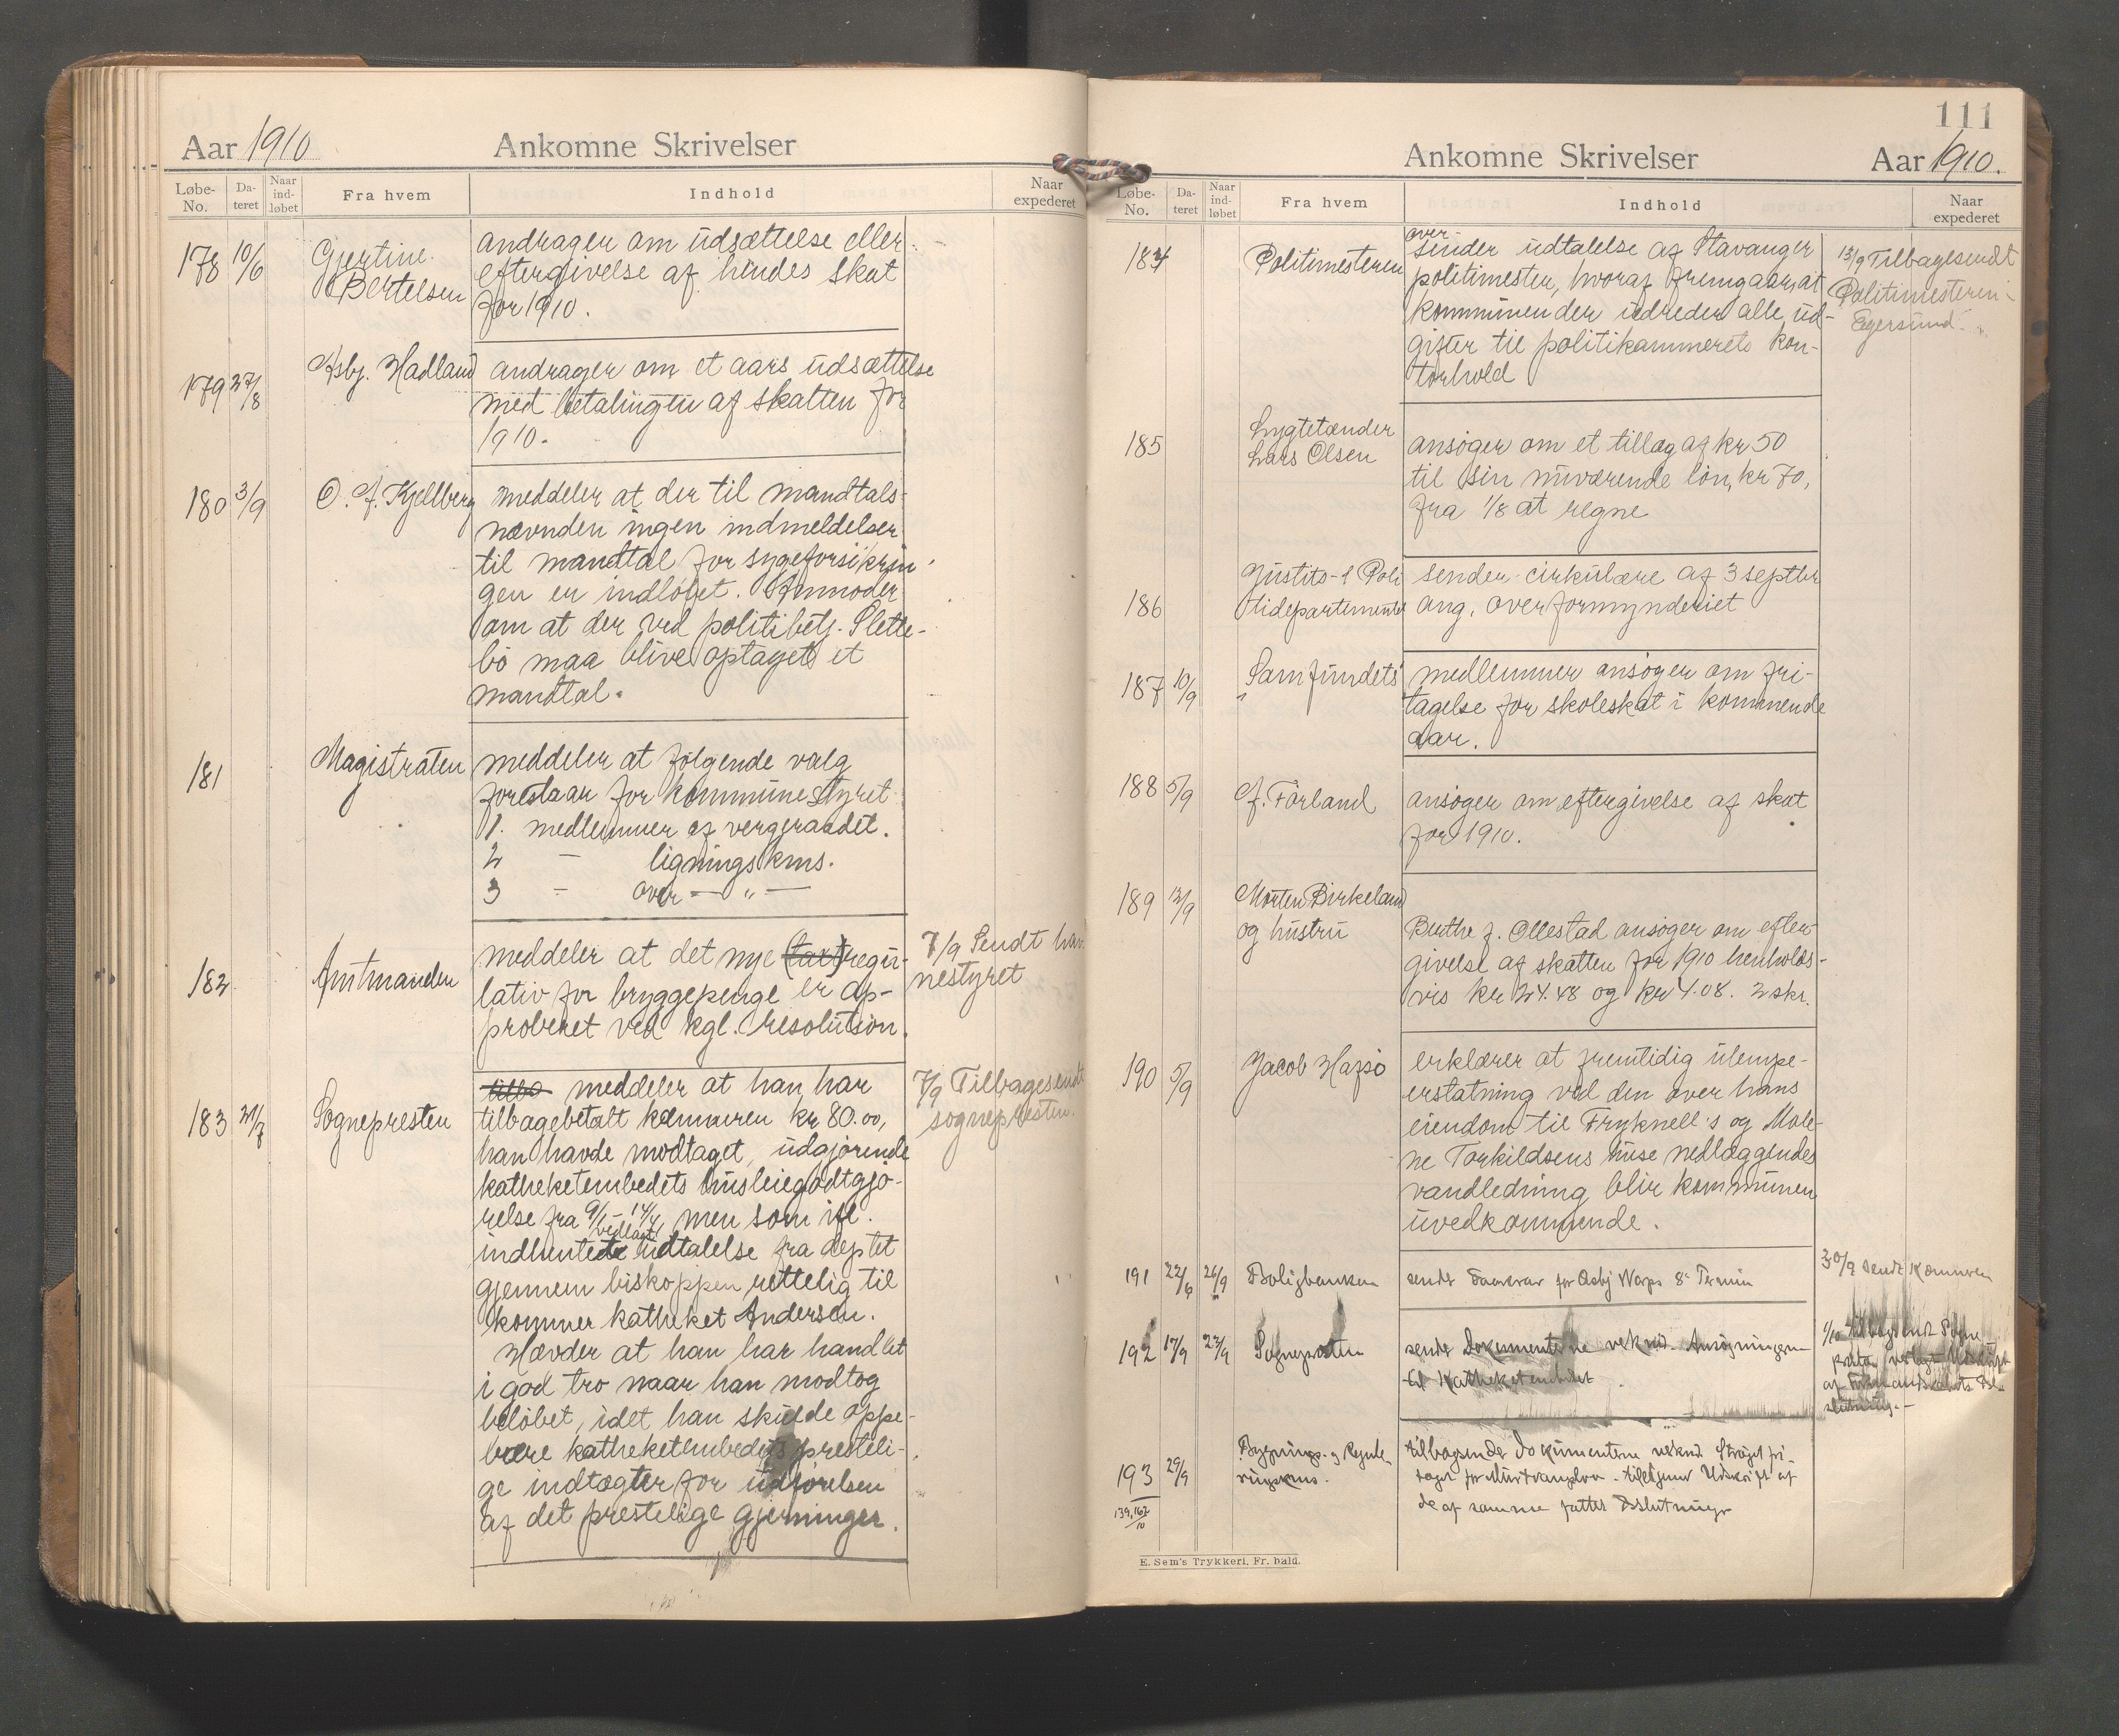 Aar 1910
Ankomne Skrivelser
Løbe-
No.
Da-
teret
Naar
ind-
løbet
Fra hvem
Indhold
Naar
expederet
178 10/6 Gjertine
Bertelsen
andrager om udsættelse eller
eftergivelse af hendes skat
for 1910.
179 27/8 Asbj. Hadland
andrager om et aars udsættelse
med betalingen af skatten for
1910.
180 3/9 O. A. Kjellberg
meddeler at der til mandtals-
nævnden ingen indmeldelser
til mandtal for sygeforsikrin
gen er indløbet. Anmoder
om at der ved politibetj. Slette-
bø maa blive optaget et
mandtal.
181 Magistraten
meddeler at følgende valg
forestaar for kommunestyret
1. medlemmer af vergeraadet.
2 — ligningskms.
3 — over — „ —
182 Amtmanden
meddeler at det nye (taxt)regu-
lativ for bryggepenge er ap-
proberet ved kgl. resolution.
7/9 Sendt hav
nestyret
183 21/7 Sognepresten
tilba meddeler at han har
tilbagebetalt kæmneren kr 80.00,
han havde modtaget, udgjørende
katheketembedets husleiegodtgjø-
relse fra 9/1 - 14/4, men som ifl.
vedlagt
indhentede udtalelse fra deptet
gjennem biskoppen rettelig til
kommer katheket Andersen.
Hævder at han har handlet
i god tro naar han modtog
beløbet, idet han skulde oppe-
bære katheketembedets presteli-
ge indtægter for udførelsen
af det prestelige gjerninger.
7/9 Tilbagesendt
sognepresten.
111
Ankomne Skrivelser
Aar 1910.
Løbe-
No.
Da-
teret
Naar
ind-
løbet
Fra hvem
Indhold
Naar
expederet
184 Politimesteren
over-
sender udtalelse af Stavanger
politimester, hvoraf fremgaar, at
kommunen der udreder alle ud-
gifter til politikammerets kon-
torhold
13/9 Tilbagesendt
Politimesteren
Egersund.
185 Lygtetænder
Lars Olsen
ansøger om et tillæg af kr 50
til sin nuværende løn, kr 70,
fra 1/8 at regne
186 Justits- & Poli
tidepartementet
sender cirkulære af 3 septbr
ang. overformynderiet
187 10/9 Samfundets
medlemmer ansøger om fri-
tagelse for skoleskat i kommende
aar.
188 5/9 A. Førland
ansøger om eftergivelse af skat
for 1910.
189 12/9 Morten Birkeland
og hustru
Berthe f. Ollestad ansøger om efter-
givelse af skatten for 1910 henholds-
vis kr 24.48 og kr 4.08. 2 skr.
190 5/9 Jacob Hafsø
erklærer at fremtidig ulempe-
erstatning ved den over hans
eiendom til Fryknell's og Male-
ne Torkildsens huse nedlæggendes
vandledning blir kommunen
uvedkommende.
191 22/6 26/9 Boligbanken
sender for Asbj 8de Termin
30/9 sendt Kæmneren
192 17/9 23/9 Sognepresten
sender Dokumenterne vedkmd. Ansøgningen
til Katheketembedet
1/10 tilbagesendt Sogne
presten Udskrift
af Formandskabets Be-
slutning.-
193 29/9 Bygnings- og Regule-
ringskms.
139,162
10
tilbagesender Dokumenterne vedkmd. Strøget fri-
taget for Murtvangslov - tilligemed Udskrift af
de af samme fattede Beslutninger
E. Sem's Trykkeri, Fr. hald.